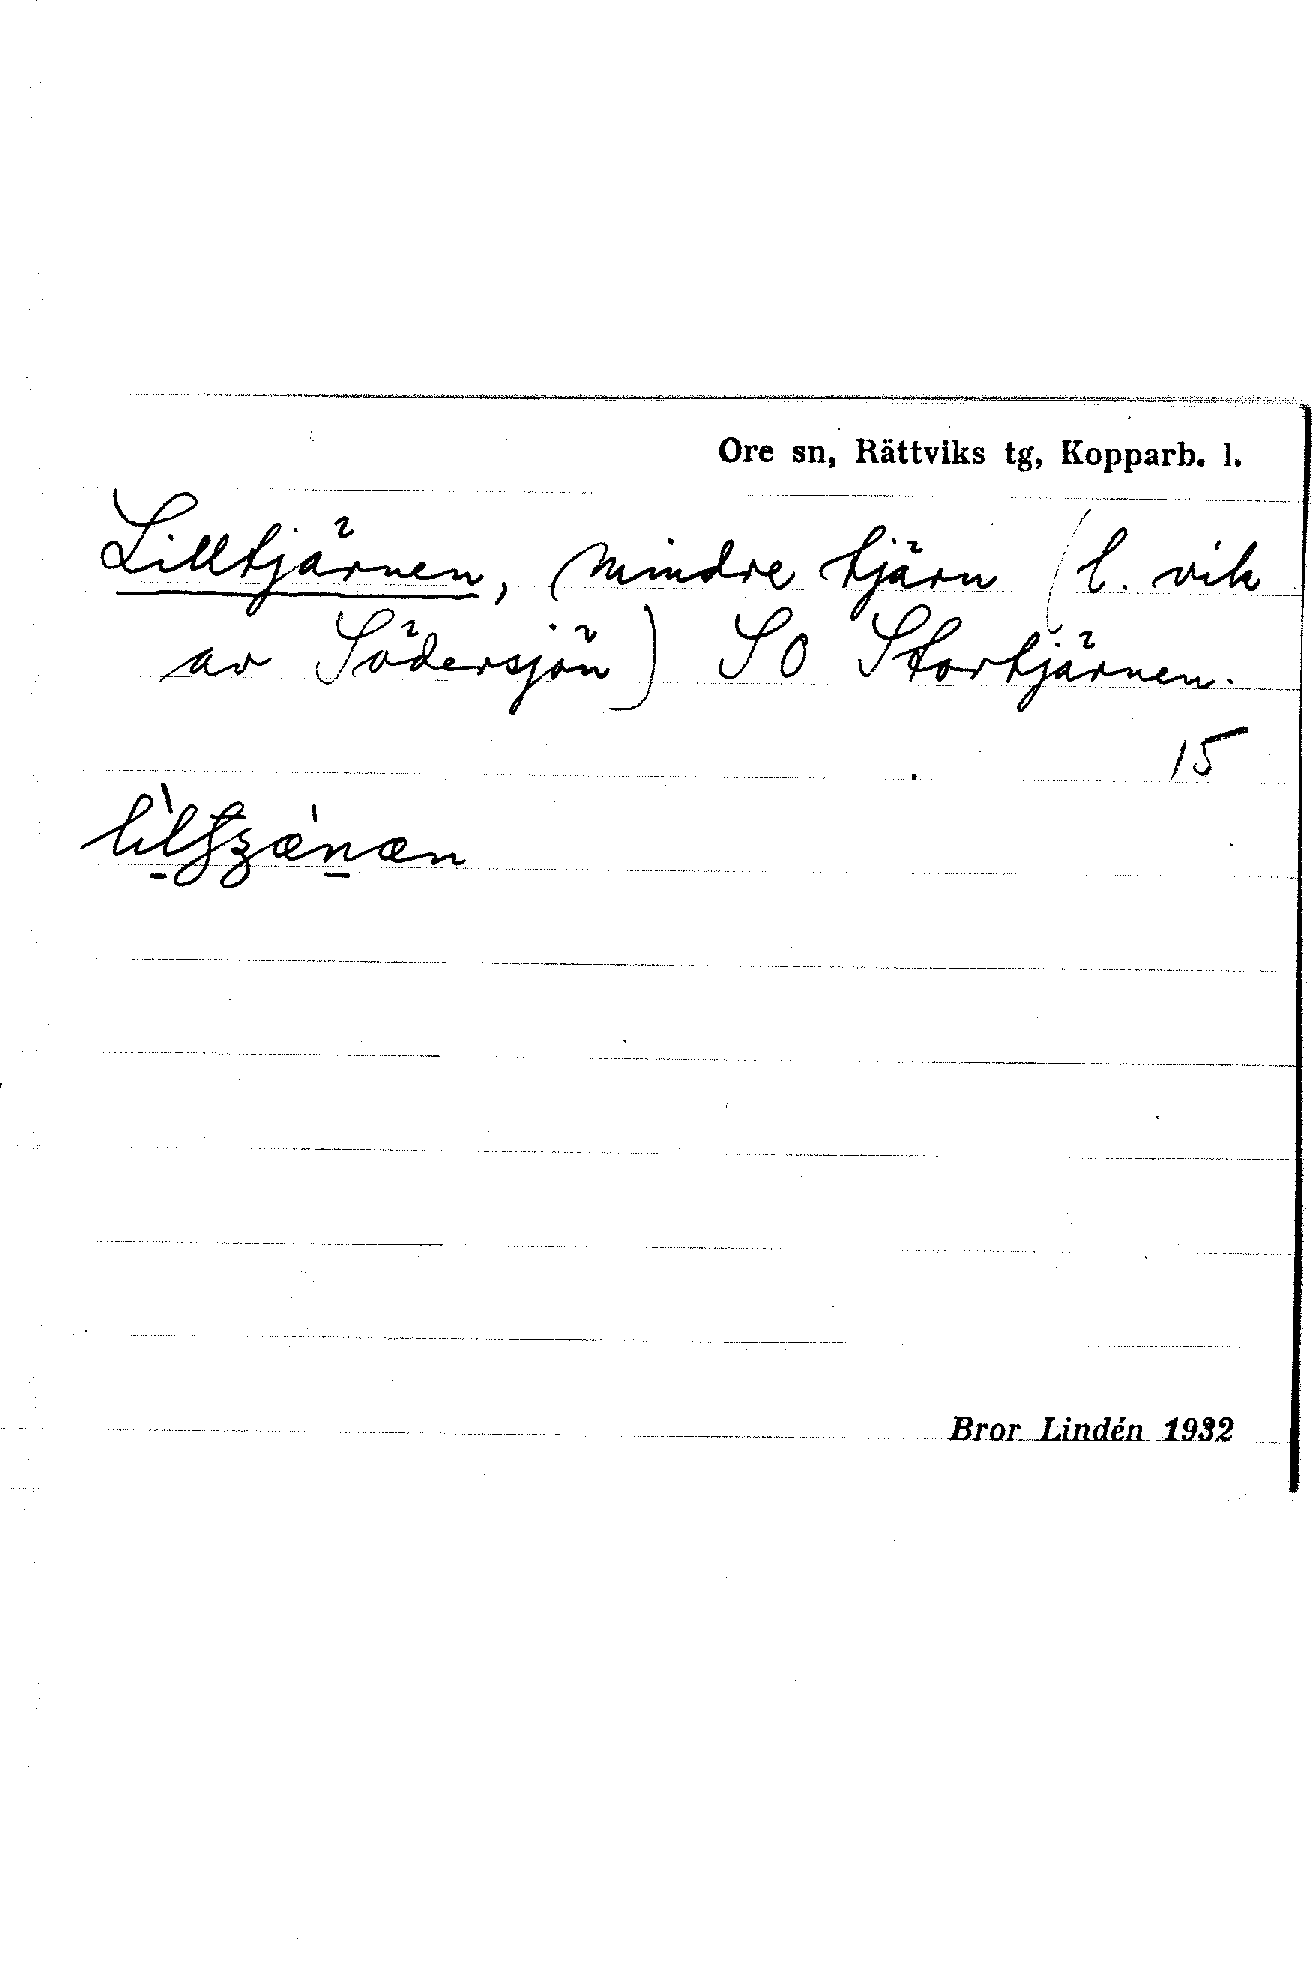 Ore sn, Rättviks tg, Kopparb. l.
Lilltjärnen, mindre tjärn (l. vik
av Södersjön) SO Stortjärnen.
15
Bror Lindén 1932